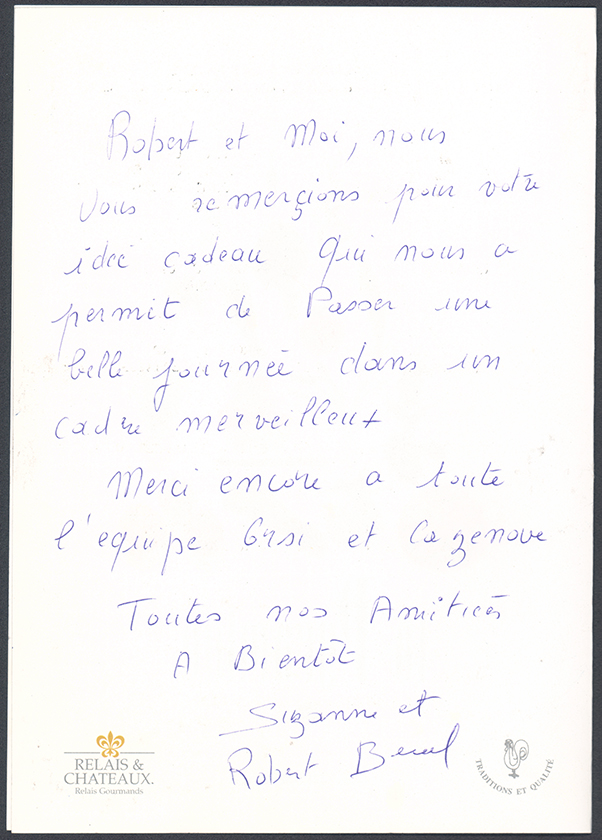 Robert et Moi, nous
vous remerçions pour votre
idée cadeau Qui nous a
permit de Passer une
belle journée dans un
cadre merveilleux
Merci encore a toute
l'equipe Grsi et Cazenove
Toutes nos Amitiés
A Bientôt
Suzanne et
Robert
RELAIS &
CHATEAUX.
Relais Gourmands
TRADITIONS ET QUALITÉ